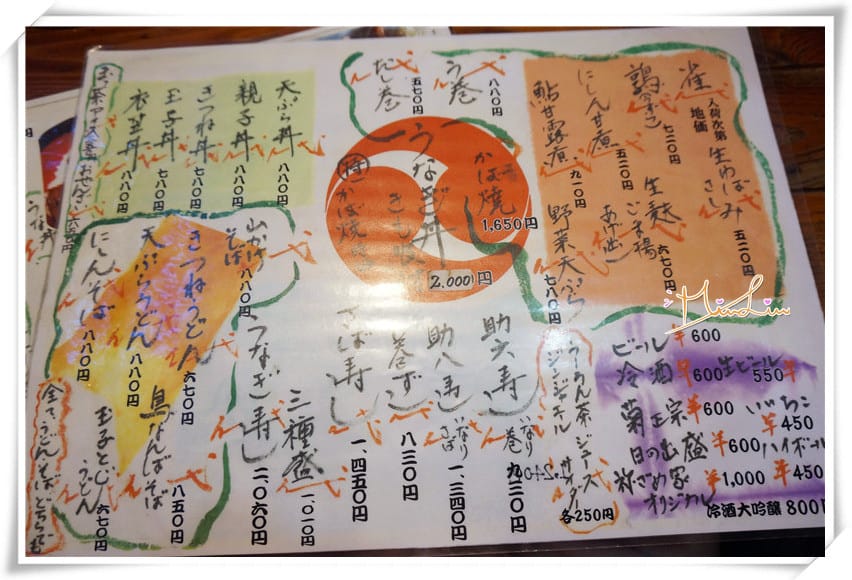 雀 入荷次第 地価
鶉 七二〇円
にしん甘煮 五二〇円
鮎甘露煮 九一〇円
生ゆばさしみ 五二〇円
生麸ごま揚 (あげ出し) 六七〇円
野菜天ぷら 七八〇円
う巻 八八〇円
だし巻 五七〇円
かば焼 1,650円
うなぎ丼 2,000円
かば焼
天ぷら丼 八八〇円
親子丼 八八〇円
きつね丼 七八〇円
玉子丼 七八〇円
衣笠丼 八八〇円
山かけそば 八八〇円
きつねうどん 六七〇円
天ぷらうどん 八八〇円
にしんそば 八八〇円
鳥なんばそば 八五〇円
玉子とじうどん 六七〇円
全て、うどん、そば、どちらでも
助六寿し いなり 巻 九三〇円
助八寿し いなり さば 一、三四〇円
巻ずし 八三〇円
さば寿し 一、四五〇円
三種盛 一、〇一〇円
うなぎ寿し 二、〇六〇円
うーろん茶 ジュース
ジンジャエール サイダー
各250円
ビール ¥600
冷酒 ¥600
生ビール 550
菊正宗 ¥600
いいちこ ¥450
日の出盛 ¥600
ハイボール ¥450
オリジナル ¥1,000
冷酒大吟醸 800円
MiaoLin